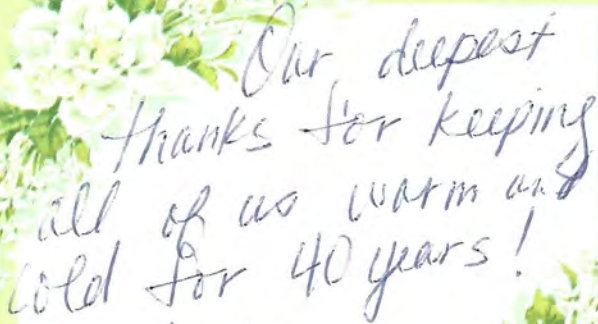 Our deepest
thanks for keeping
all of us warm and
cold for 40 years!